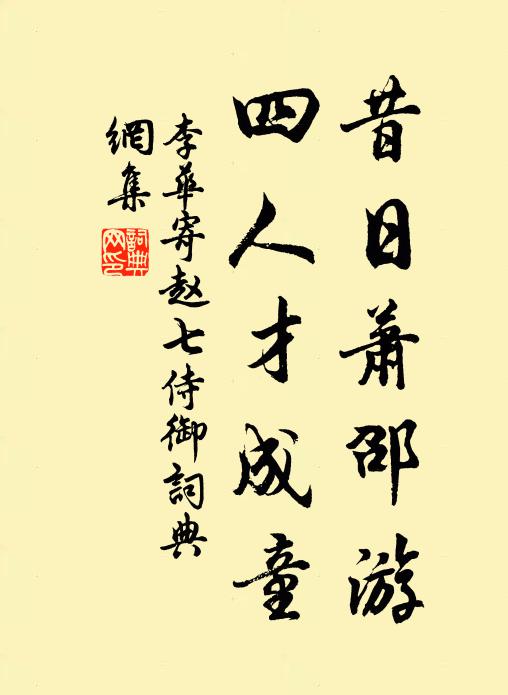 昔日萧邵游
四人才成童
李华寄赵七侍御词典
網集
詞典網印